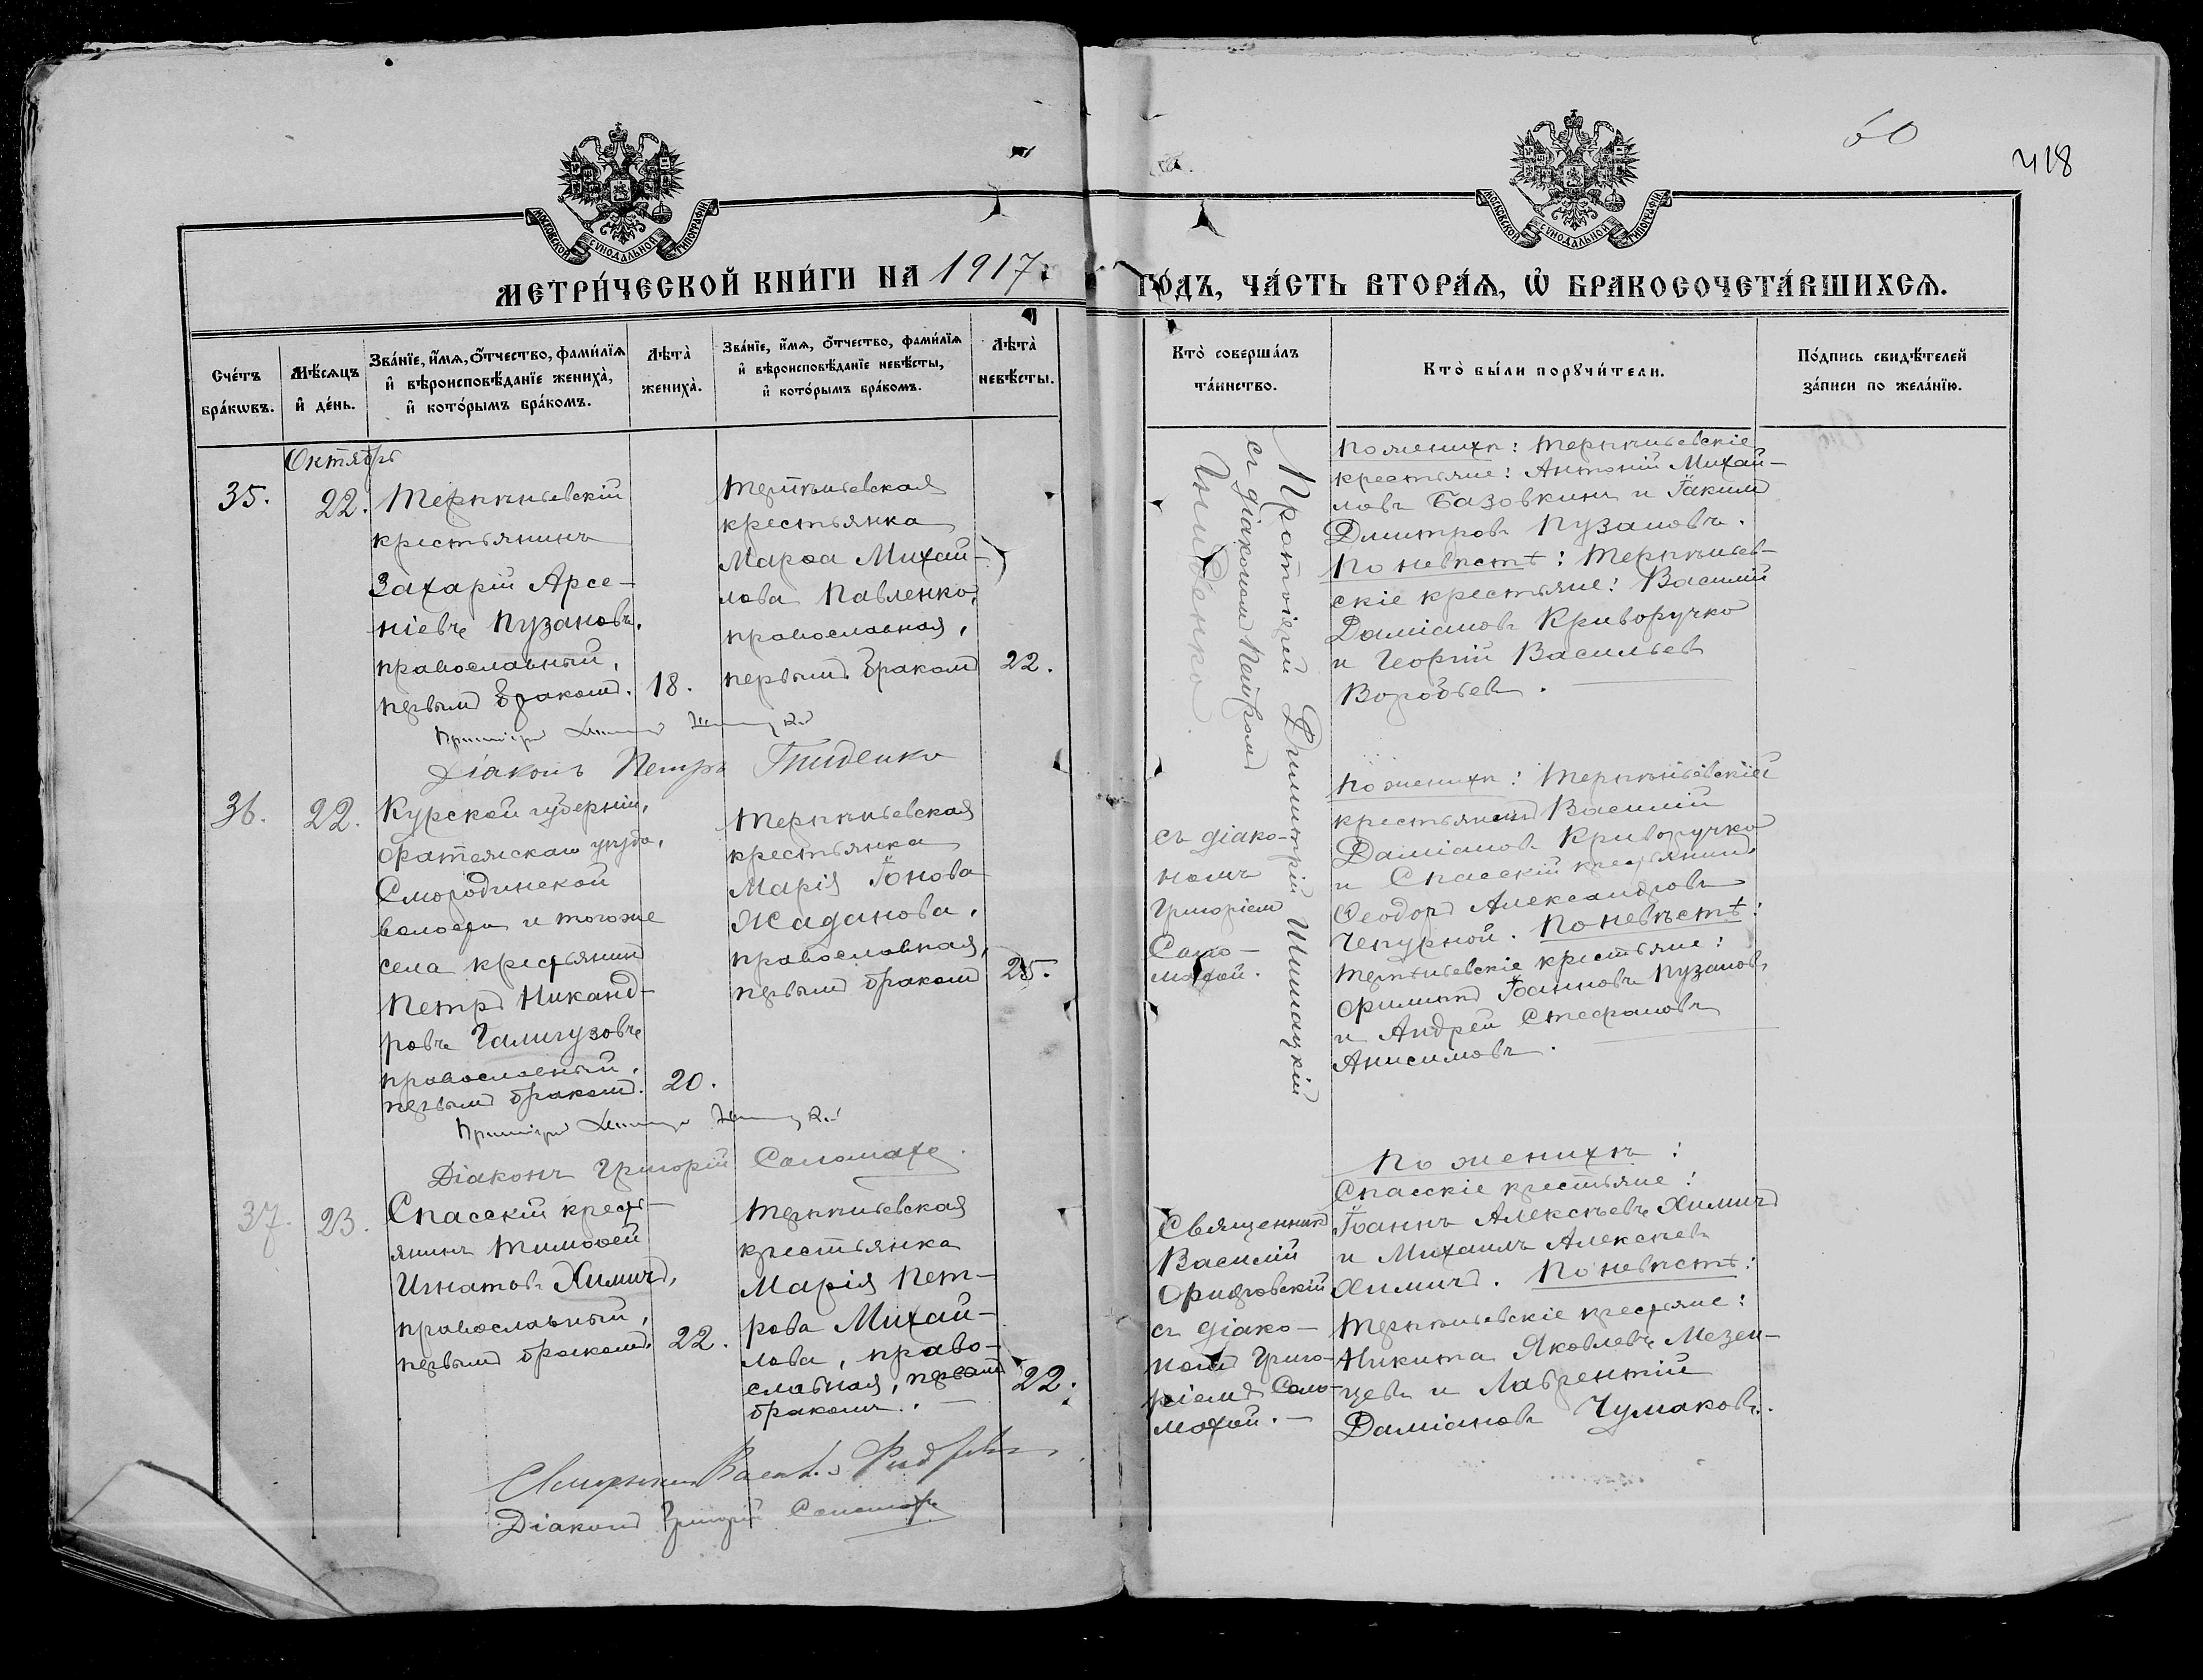 60
418
МОСКОВСКОЙ СѴНОДАЛЬНОЙ ТИПОГРАФІИ
МОСКОВСКОЙ СѴНОДАЛЬНОЙ ТИПОГРАФІИ
МЕТРИ́ЧЕСКОЙ КНИ́ГИ НА 1917.
ГО́ДЪ, ЧА́СТЬ ВТОРА́Ѧ, Ѽ БРАКОСОЧЕТА́ВШИХСѦ.
Сче́тъ бра́кѡвъ.
Мѣ́сѧцъ и҆ де́нь.
Зва́нїе, и҆́мѧ, ѻ҆́тчество, фами́лїѧ
и҆ вѣроисповѣ́данїе жениха̀,
и҆ кото́рымъ бра́комъ.
Лѣта̀ жениха̀.
Зва́нїе, и҆́мѧ, ѻ҆́тчество, фами́лїѧ
и҆ вѣроисповѣ́данїе невѣ́сты,
и҆ кото́рымъ бра́комъ.
Лѣта̀ невѣ́сты.
Кто̀ соверша́лъ
та́инство.
Кто̀ бы́ли порꙋчи́тели.
По́дпись свидѣ́телей
за́писи по жела́нїю.
Октябрь
35.
22.
Терпѣньевскій
крестьянинъ
Захарій Арсе-
ніевъ Пузановъ,
православный,
первымъ бракомъ.
18.
Терпѣньевская
крестьянка
Марѳа Михай-
лова Павленко,
православная,
первымъ бракомъ
22.
Протоіерей Димитрій Шишацкій
съ діакономъ Петромъ
Гниденко.
По женихѣ: Терпѣньевскіе
крестьяне: Антоній Михай-
ловъ Базовкинъ и Іакимъ
Дмитровъ Пузановъ.
По невѣстѣ: Терпѣньев-
скіе крестьяне: Василій
Даміановъ Криворучко
и Георгій Васильев
Воробьевъ.
Діаконъ Петръ Гниденко
36.
22.
Курской губерніи,
Фатежскаго уѣзда,
Смородинской
волости и тогоже
села крестьянинъ
Петръ Никанд-
ровъ Галигузовъ
православный,
первымъ бракомъ.
20.
Терпѣньевская
крестьянка
Марія Іонова
Жаданова,
православная,
первымъ бракомъ
25.
съ діако-
номъ
Григоріемъ
Соло-
махой.
По женихѣ: Терпѣніевскій
крестьянинъ Василій
Даміановъ Криворучко
и Спасскій крестьянинъ
Ѳеодоръ Александровъ
Чепурной. По невѣстѣ:
Терпѣньевскіе крестьяне:
Филиппъ Іоанновъ Пузановъ
и Андрей Стефановъ
Анисимовъ.
Діаконъ Григорій Соломаха.
37.
23.
Спасскій кресть-
янинъ Тимоѳей
Игнатовъ Химичъ,
православный,
первымъ бракомъ.
22.
Терпѣньевская
крестьянка
Марія Пет-
рова Михай-
лова, право-
славная, первымъ
бракомъ.
22.
Священникъ
Василій
Фидровскій
съ діако-
номъ Григо-
ріемъ Соло-
махой.
По женихѣ:
Спасскіе крестьяне:
Іоаннъ Алексѣевъ Химичъ
и Михаилъ Алексѣев
Химичъ. По невѣстѣ:
Терпѣньевскіе крестьяне:
Никита Яковлевъ Мезен-
цевъ и Лаврентій
Даміановъ Чумаковъ.
Діаконъ Григорій Соломаха